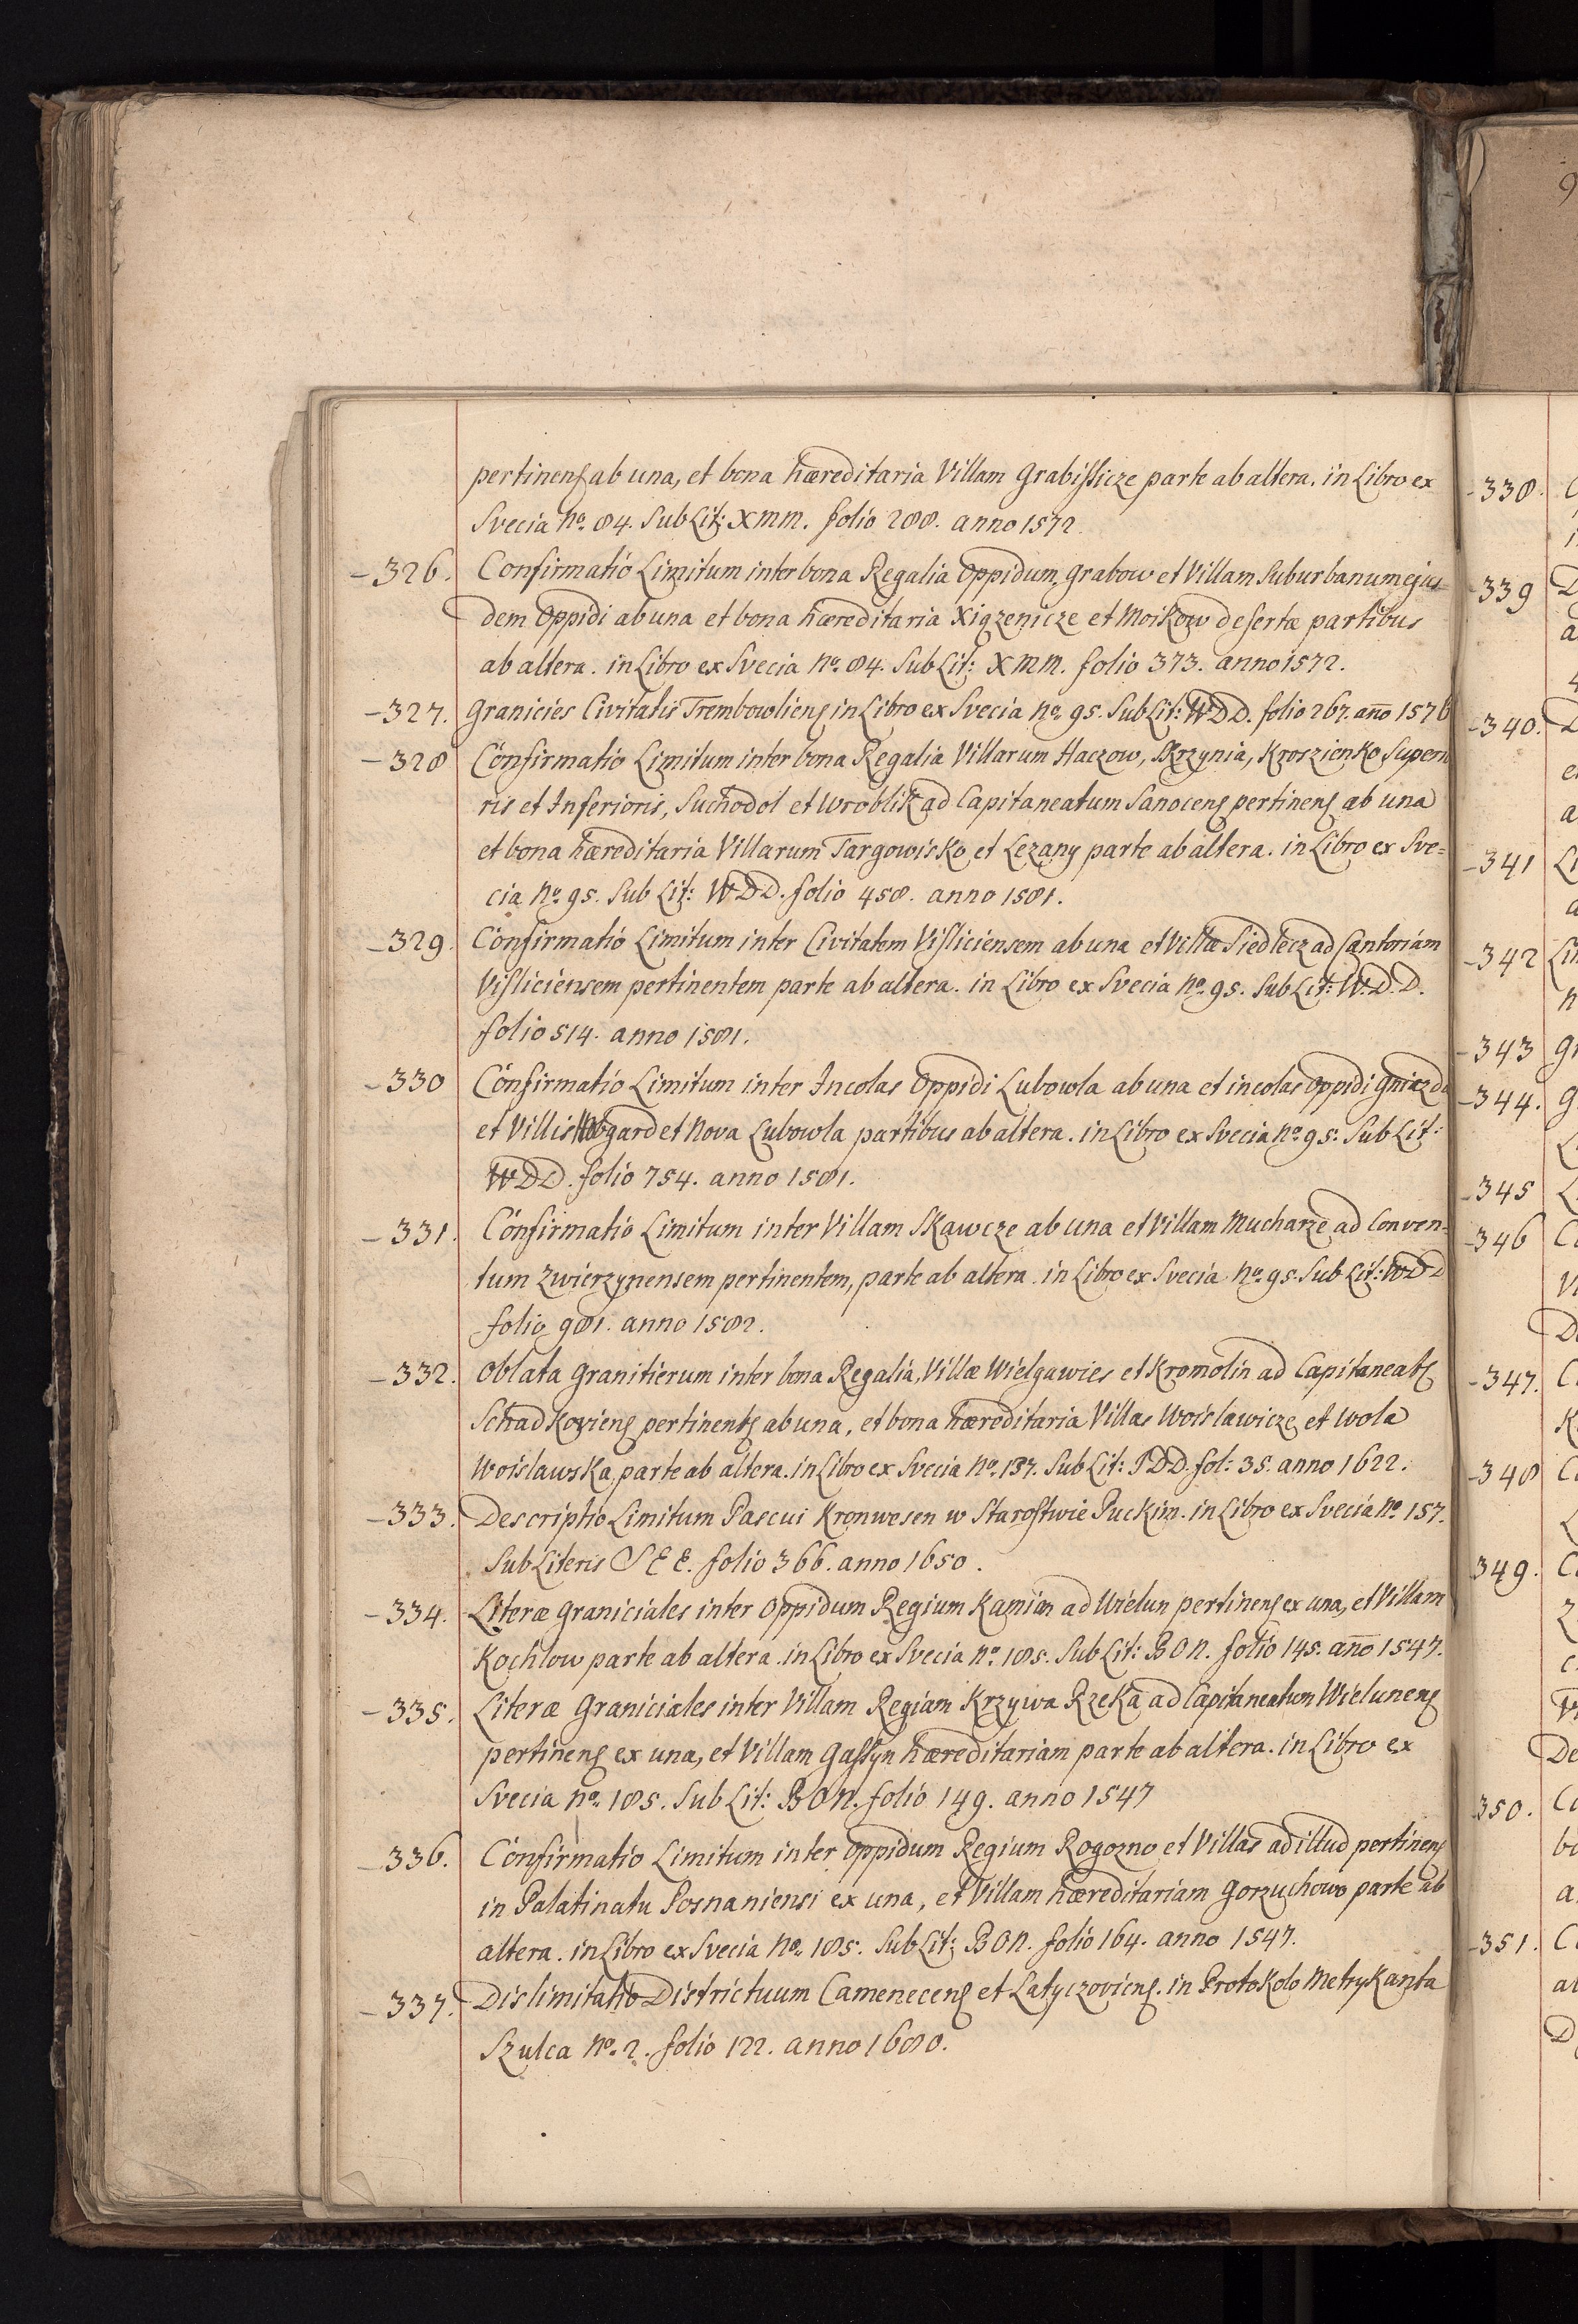 pertinens ab una, et bona hæreditaria Villam Grabissicze parte ab altera. in Libro ex
Svecia No. 84. Sub Lit: XMM. folio 288. anno 1572.
326. Confirmatio Limitum inter bona Regalia Oppidum Grabow et Villam Suburbanum ejus
dem Oppidi ab una et bona hæreditaria Xiązenicze et Moikow desertæ partibus
ab altera. in Libro ex Svecia No. 84. Sub Lit: XMM. folio 373. anno 1572.
327. Granicies Civitatis Trembowliens in Libro ex Svecia No. 95. Sub Lit: WDD. folio 267. año 1576
328 Confirmatio Limitum inter bona Regalia Villarum Haczow, Skrzynia, Kroszienko Superio
ris et Inferioris, Suchodol et Wroblik ad Capitaneatum Sanocens pertinens ab una
et bona hæreditaria Villarum Targowisko et Lezany parte ab altera. in Libro ex Sve=
cia No. 95. Sub Lit: WDD. folio 458. anno 1581.
329. Confirmatio Limitum inter Civitatem Visliciensem ab una et Villæ Siedlecz ad Cantoriam
Visliciensem pertinentem parte ab altera. in Libro ex Svecia No. 95. Sub Lit: W.D.D.
folio 514. anno 1581.
330 Confirmatio Limitum inter Incolas Oppidi Lubowla ab una et incolas Oppidi Gniazda
et Villis Hobgard et Nova Lubowla partibus ab altera. in Libro ex Svecia No. 95. Sub Lit:
WDD. folio 754. anno 1581.
331. Confirmatio Limitum inter Villam Skawcze ab una et Villam Mucharze ad Conven=
tum Zwierzynensem pertinentem, parte ab altera. in Libro ex Svecia No. 95. Sub Lit: WDD
folio 981. anno 1582.
332. Oblata Granitierum inter bona Regalia, Villæ Wielgawies et Kromolin ad Capitaneats
Schadkoviens pertinents ab una, et bona hæreditaria Villas Woislawicze et Wola
Woislawska, parte ab altera. in Libro ex Svecia No. 137. Sub Lit: IDD. fol: 35. anno 1622.
333. Descriptio Limitum Pascui Kronwesen w Starostwie Puckim. in Libro ex Svecia No 157.
Sub Literis SEE. folio 366. anno 1650.
334. Literæ Graniciales inter Oppidum Regium Kamion ad Wielun pertinens ex una, et Villam
Kochlow parte ab altera. in Libro ex Svecia No. 185. Sub Lit: BON. folio 145. año 1547.
335. Literæ Graniciales inter Villam Regiam Krzywa Rzeka ad Capitaneatum Wieluneng
pertinens ex una, et Villam Gassyn hæreditariam parte ab altera. in Libro ex
Svecia No. 185. Sub Lit: BON. folio 149. anno 1547
336. Confirmatio Limitum inter Oppidum Regium Rogozno et Villas ad illud pertinens
in Palatinatu Posnaniensi ex una, et Villam hæreditariam Gorzuchowo parte ab
altera. in Libro ex Svecia No. 185. Sub Lit: BON. folio 164. anno 1547.
337. Dislimitatio Districtuum Camenecens et Latyczoviens. in Protokolo Metrykanta
Szulca No. 2. folio 122. anno 1680.
338.
339
340.
341
342
343
344.
345
346
347.
348
349.
350.
351.